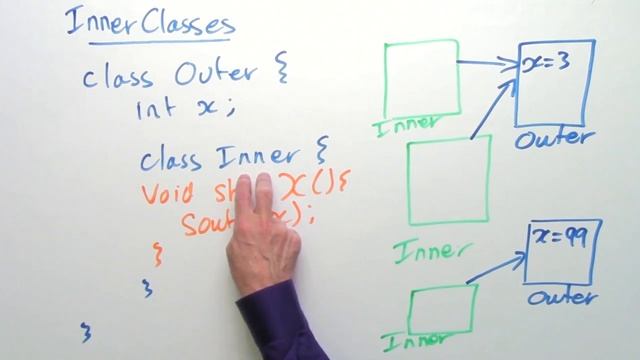 Inner Classes
class Outer {
int x;
class Inner {
Void X(){
x);
}
}
}
Inner
x=3
Outer
Inner
x=99
Outer
Inner